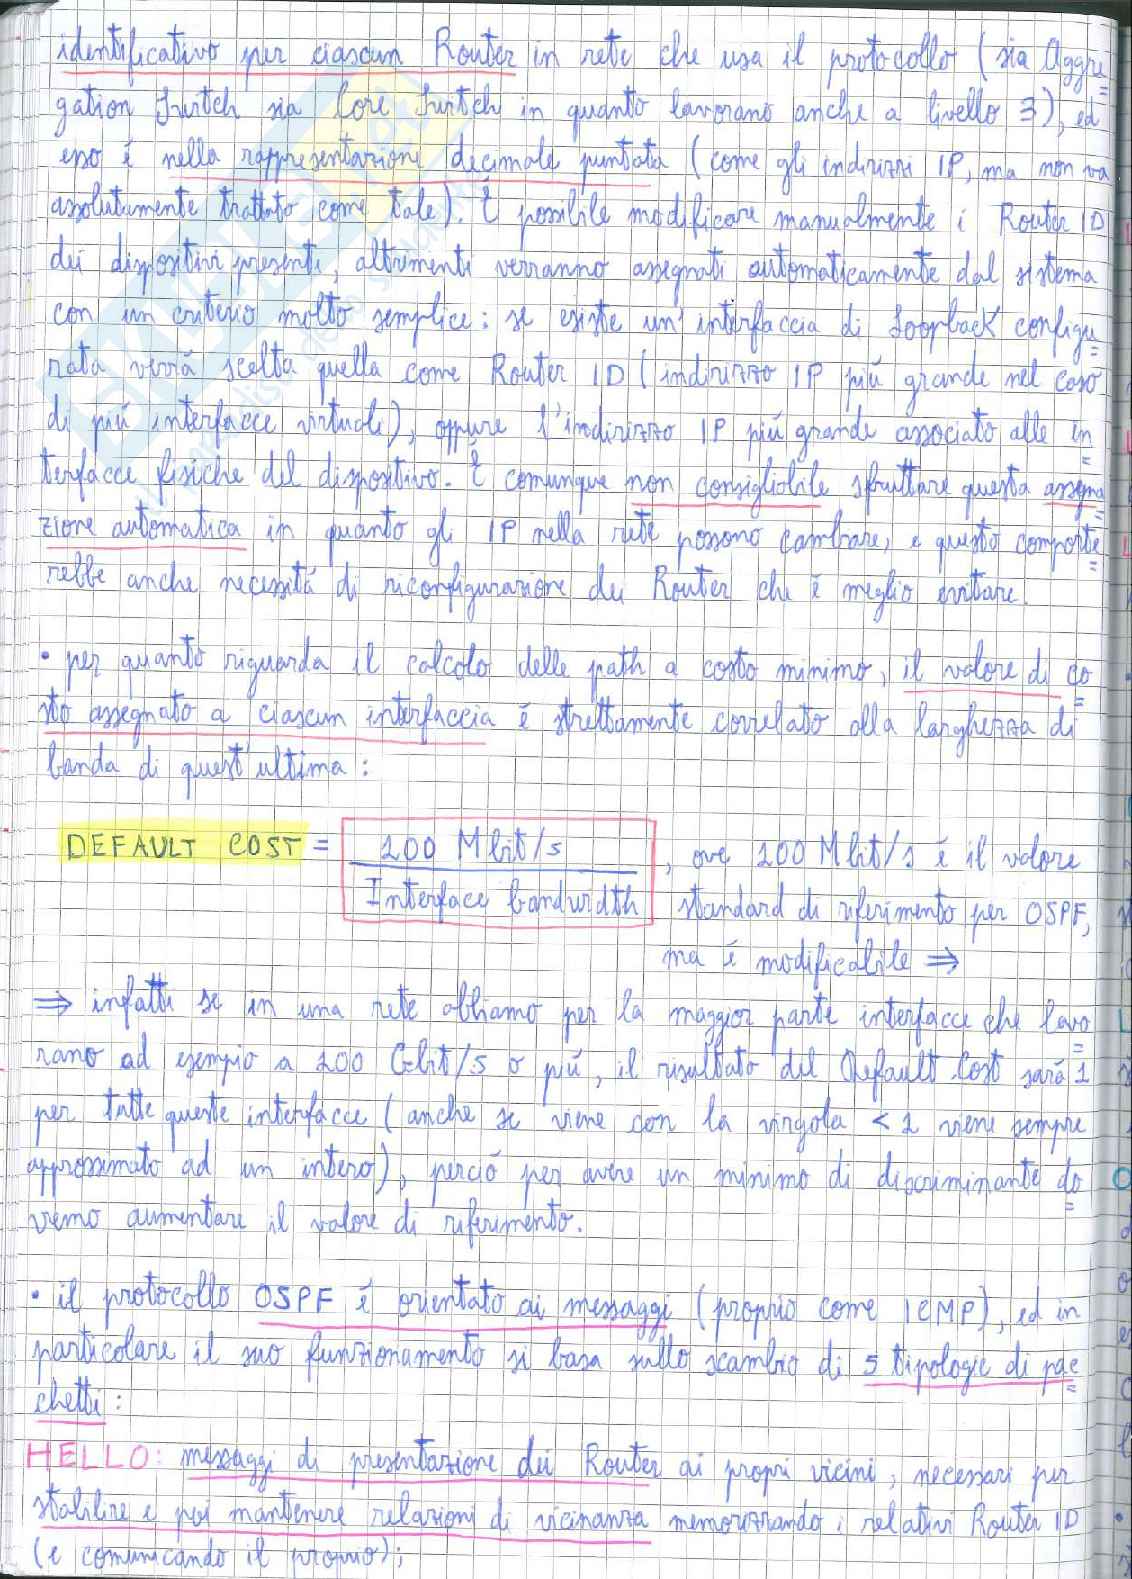 identificativo per ciascun Router in rete che usa il protocollo (sia Aggre
gation Switch sia Core Switch in quanto lavorano anche a livello 3), ed
esso è nella rappresentazione decimale puntata (come gli indirizzi IP, ma non va
assolutamente trattato come tale). È possibile modificare manualmente i Router ID
dei dispositivi presenti, altrimenti verranno assegnati automaticamente dal sistema
con un criterio molto semplice: se esiste un'interfaccia di Loopback configu
rata verrà scelta quella come Router ID (indirizzo IP più grande nel caso
di più interfacce virtuali), oppure l'indirizzo IP più grande associato alle in
terfacce fisiche del dispositivo. È comunque non consigliabile sfruttare questa assegna
zione automatica in quanto gli IP nella rete possono cambiare, e questo comporte
rebbe anche necessità di riconfigurazione dei Router che è meglio evitare.
• per quanto riguarda il calcolo delle path a costo minimo, il valore di co
sto assegnato a ciascun interfaccia è strettamente correlato alla larghezza di
banda di quest'ultima:
DEFAULT COST = 100 Mbit/s , ove 100 Mbit/s è il valore
Interface bandwidth standard di riferimento per OSPF,
ma è modificabile ⇒
⇒ infatti se in una rete abbiamo per la maggior parte interfacce che lavo
rano ad esempio a 100 Gbit/s o più, il risultato del Default Cost sarà 1
per tutte queste interfacce (anche se viene con la virgola < 1 viene sempre
approssimato ad un intero), perciò per avere un minimo di discriminante do
vremo aumentare il valore di riferimento.
• il protocollo OSPF è orientato ai messaggi (proprio come ICMP), ed in
particolare il suo funzionamento si basa sullo scambio di 5 tipologie di pac
chetti:
HELLO: messaggi di presentazione dei Router ai propri vicini, necessari per
stabilire e poi mantenere relazioni di vicinanza memorizzando i relativi Router ID
(e comunicando il proprio);